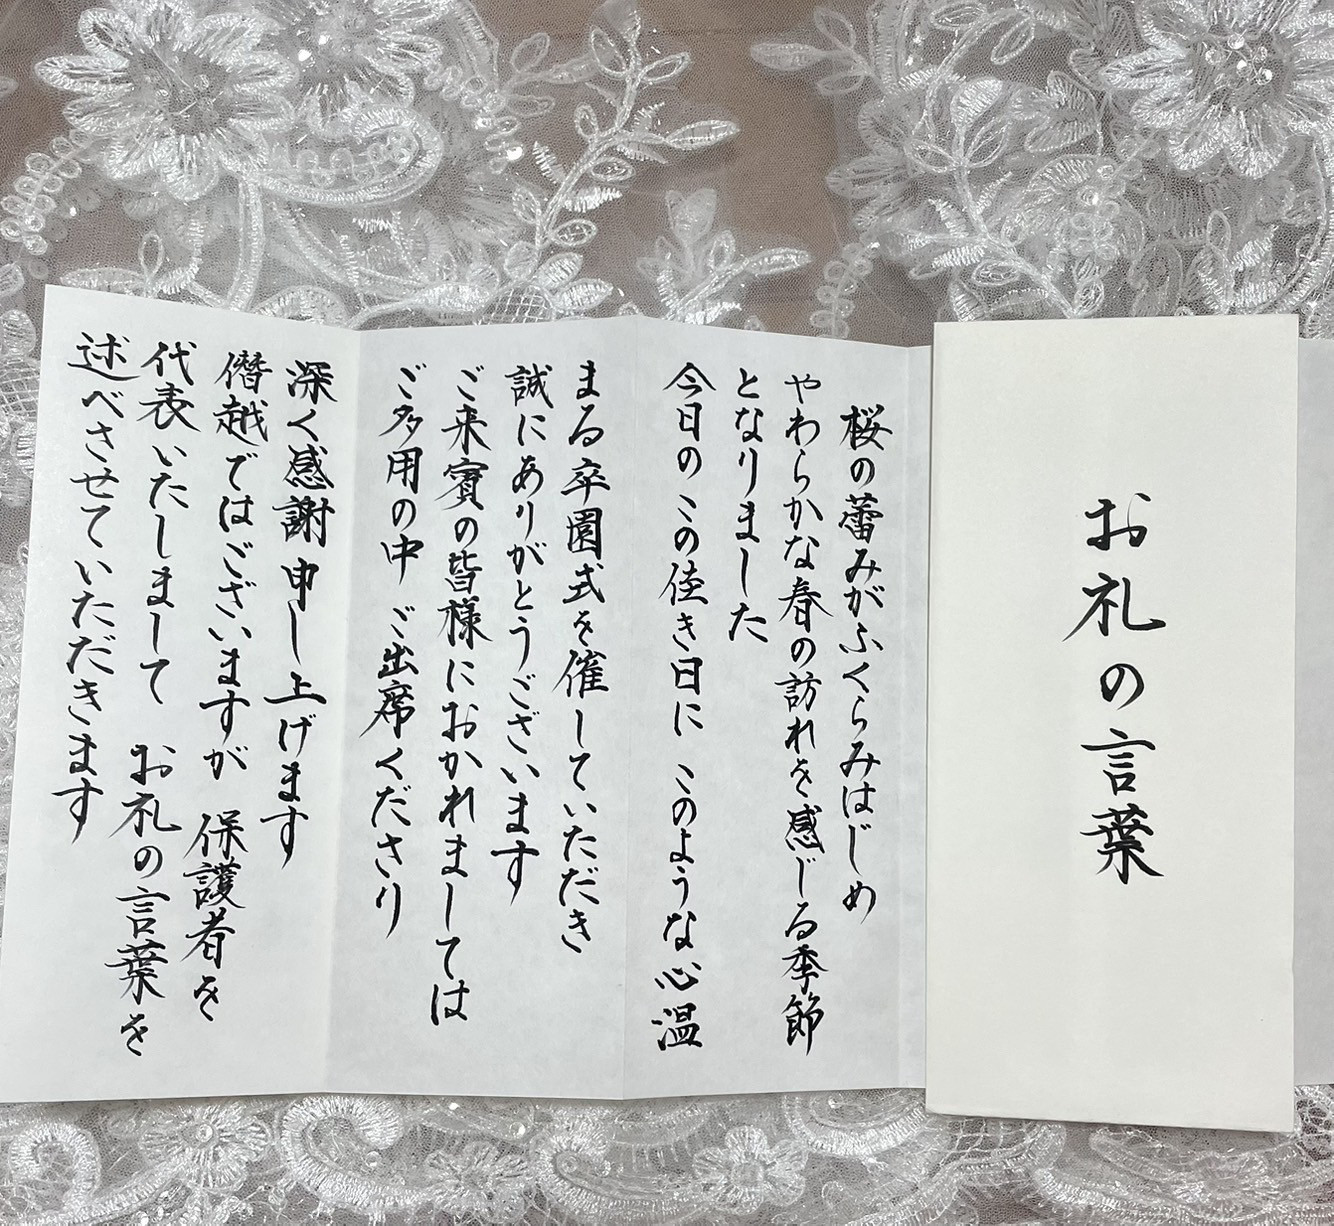 お礼の言葉
桜の蕾みがふくらみはじめ
やわらかな春の訪れを感じる季節
となりました
今日のこの佳き日に このような心温
まる卒園式を催していただき
誠にありがとうございます
ご来賓の皆様におかれましては
ご多用の中 ご出席くださり
深く感謝申し上げます
僭越ではございますが 保護者を
代表いたしまして お礼の言葉を
述べさせていただきます